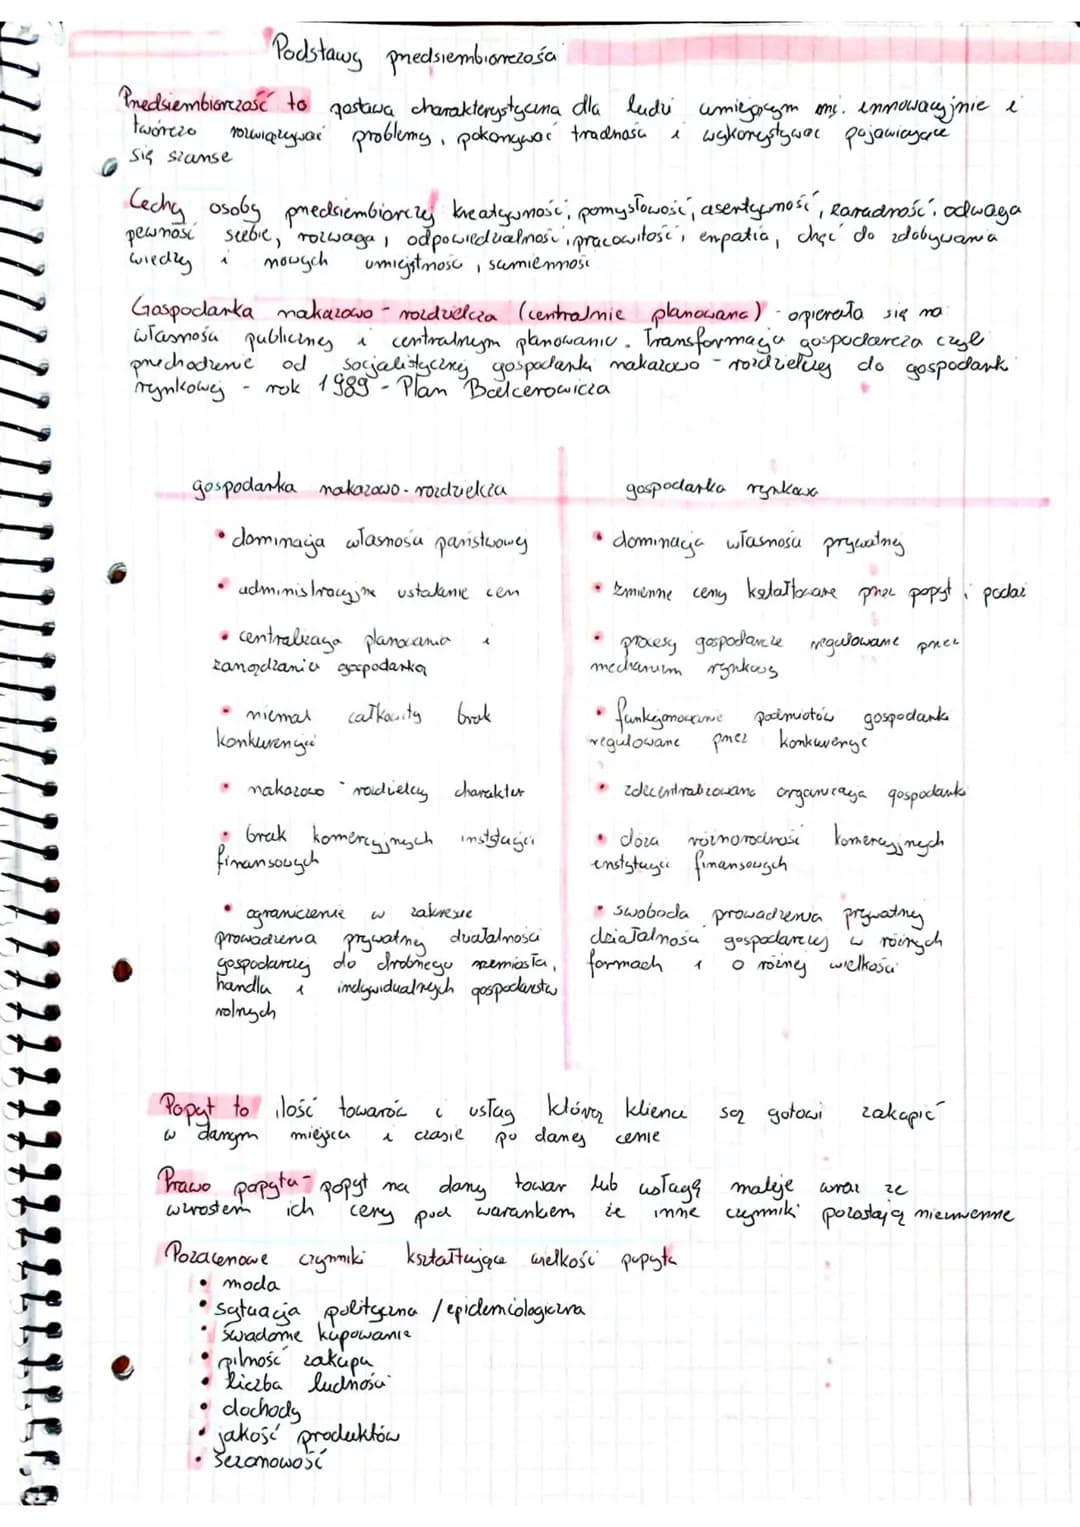 Podstawy przedsiębiorczości
Przedsiębiorczość to postawa charakterystyczna dla ludzi umiejącym m.in. innnowacyjnie i
twórczo rozwiązywać problemy, pokonywać trudności i wykorzystywać pojawiające
się szanse
Cechy osoby przedsiębiorczej kreatywność, pomysłowość, asertywność, zaradność, odwaga
pewność siebie, rozwaga, odpowiedzialność, pracowitość, empatia, chęć do zdobywania
wiedzy i nowych umiejętność, sumienność
Gospodarka nakazowo-rozdzielcza (centralnie planowana) - opierała się na
własności publicznej i centralnym planowaniu. Transformacja gospodarcza czyli
przechodzenie od socjalistycznej gospodarki nakazowo-rozdzielczej do gospodarki
rynkowej - rok 1989 - Plan Balcerowicza
gospodarka nakazowo-rozdzielcza
• dominacja własności państwowej
• administracyjne ustalanie cen
• centralizacja planowania i
zarządzania gospodarką
• niemal całkowity brak
konkurencji
• nakazowo-rozdzielczy charakter
• brak komercyjnych instytucji
finansowych
• ograniczenie w zakresie
prowadzenia prywatnej działalności
gospodarczej do drobnego rzemiosła,
handlu i indywidualnych gospodarstw
rolnych
gospodarka rynkowa
• dominacja własności prywatnej
• zmienne ceny kształtowane przez popyt i podaż
• procesy gospodarcze regulowane przez
mechanizm rynkowy
• funkcjonowanie podmiotów gospodarki
regulowane przez konkurencję
• zdecentralizowana organizacja gospodarki
• duża różnorodność komercyjnych
instytucji finansowych
• swoboda prowadzenia prywatnej
działalności gospodarczej w różnych
formach i o różnej wielkości
Popyt to ilość towarów i usług którą klienci są gotowi zakupić
w danym miejscu i czasie po danej cenie
Prawo popytu - popyt na dany towar lub usługę maleje wraz ze
wzrostem ich ceny pod warunkiem że inne czynniki pozostają niezmienne
Pozacenowe czynniki kształtujące wielkość popytu
• moda
• sytuacja polityczna / epidemiologiczna
• świadome kupowanie
• pilność zakupu
• liczba ludności
• dochody
• jakość produktów
• sezonowość